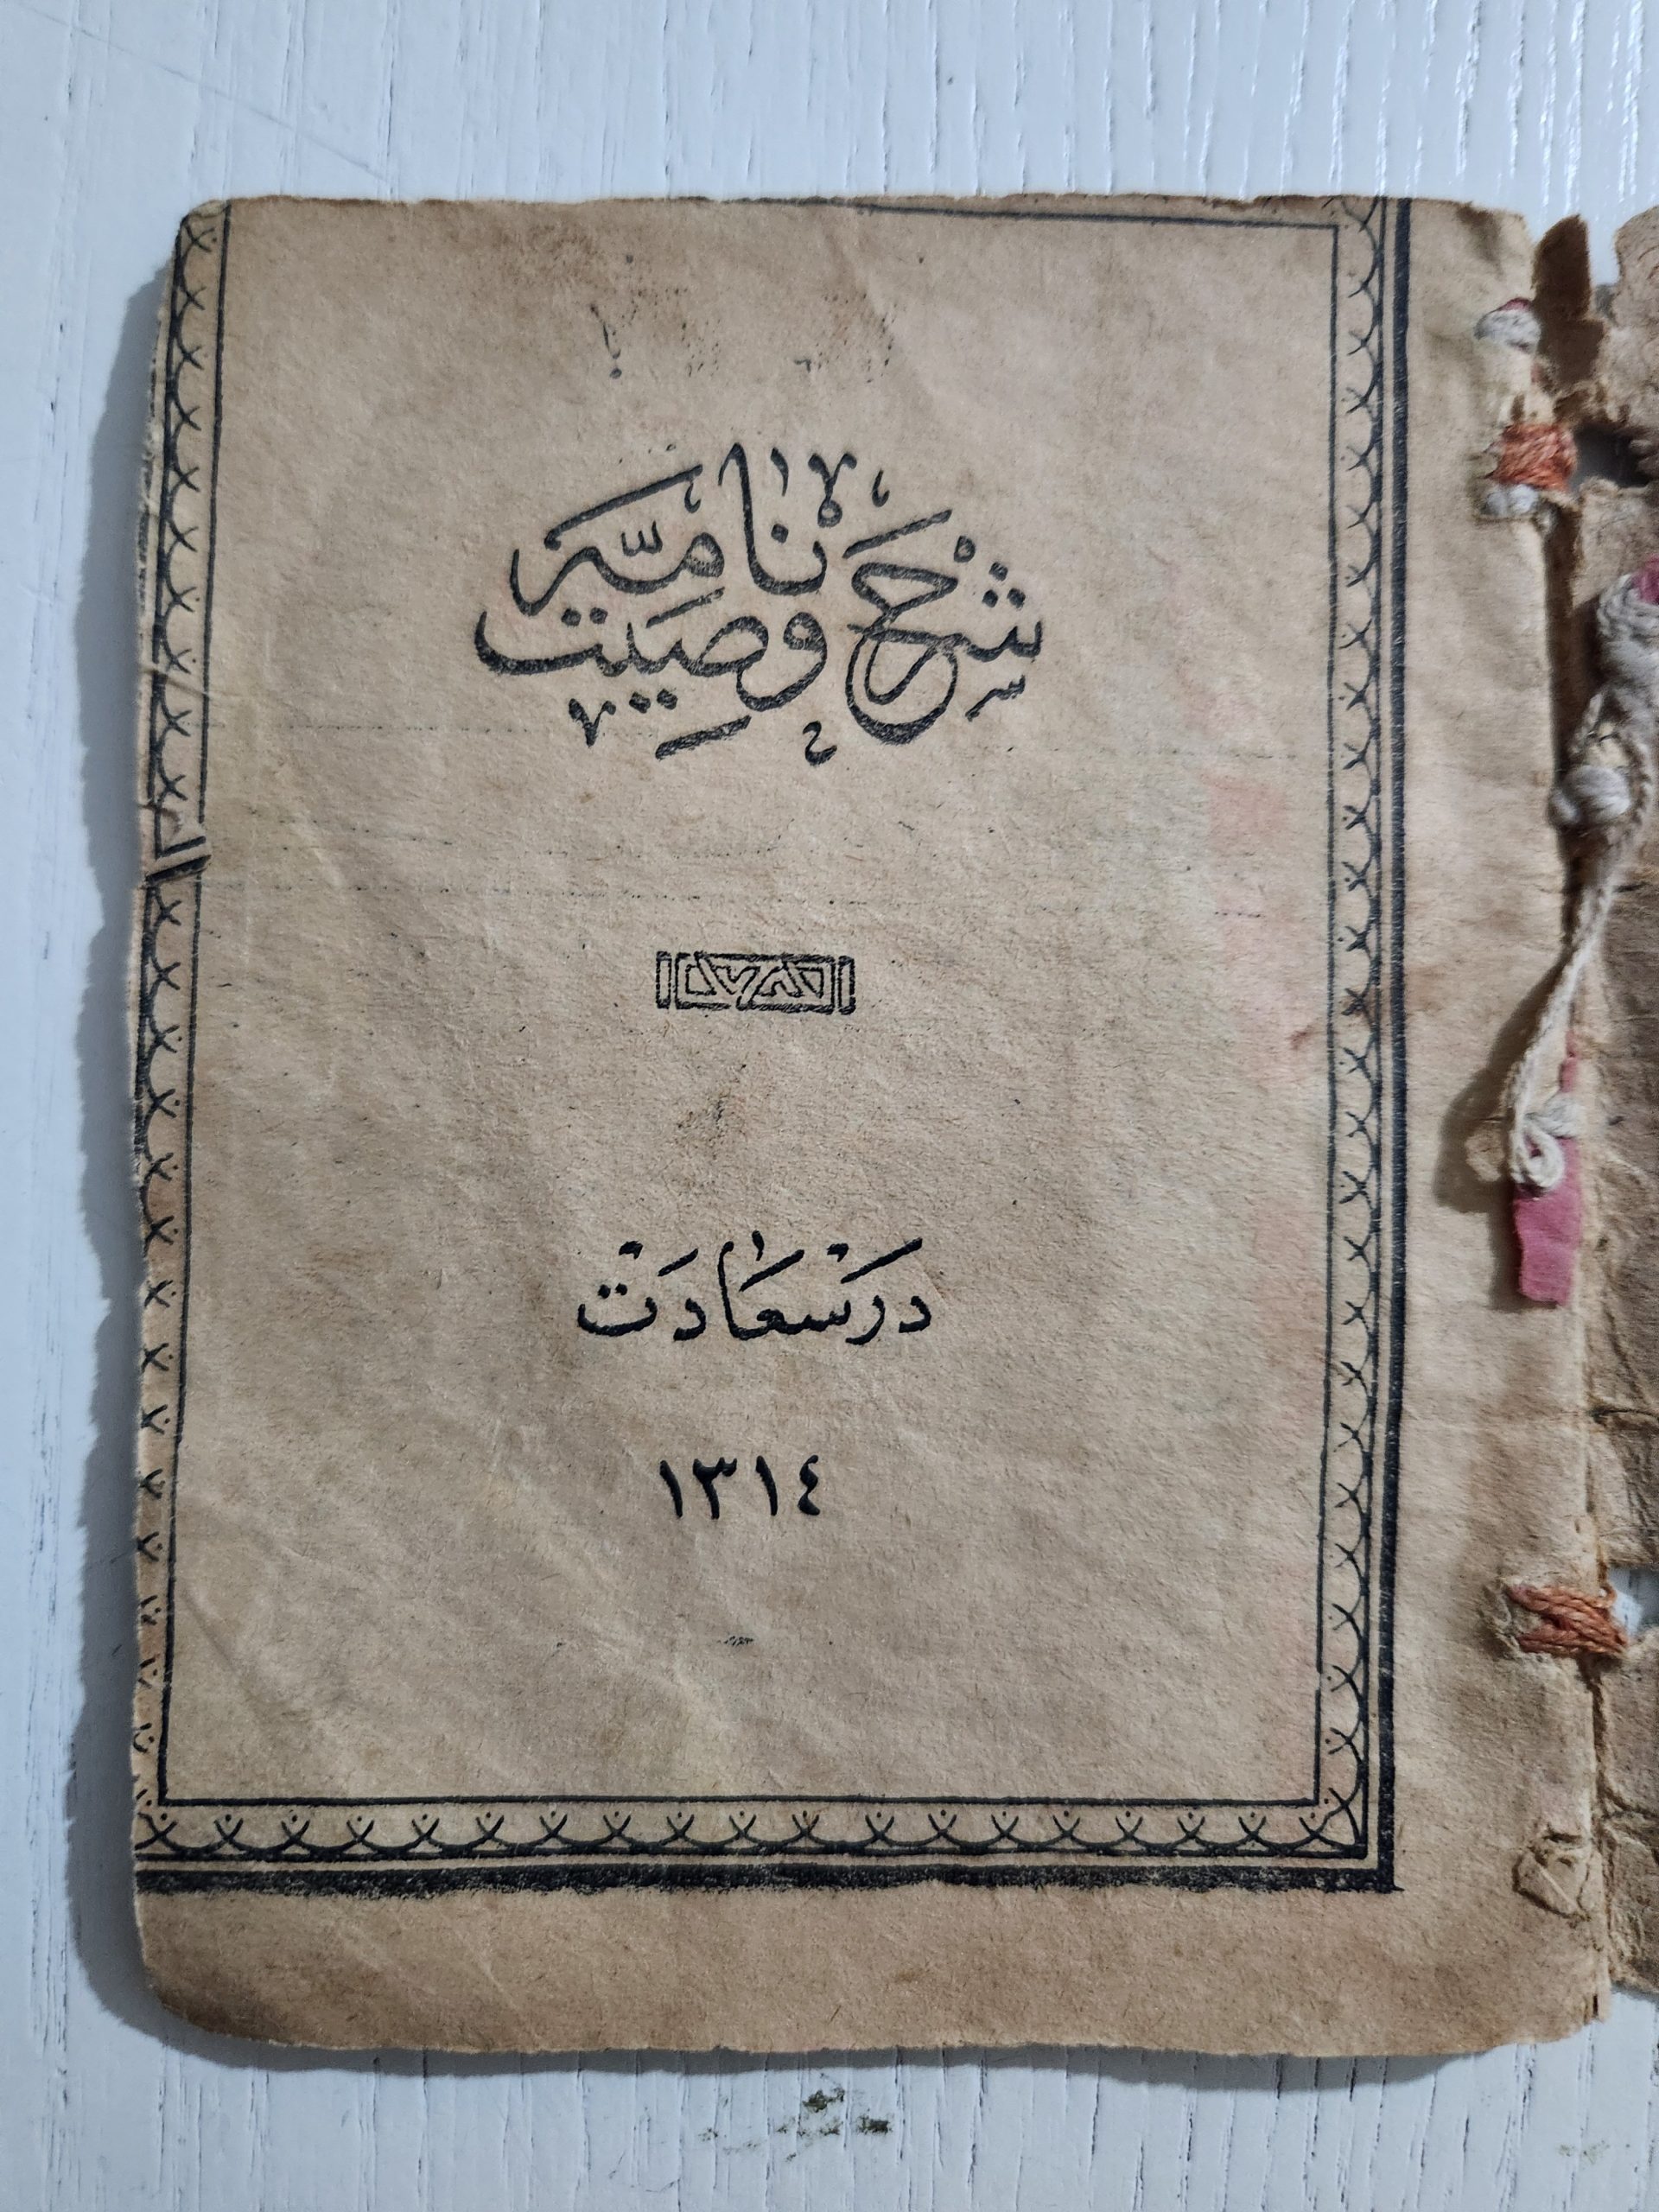 شرح وصيتنامه سى
درسعادت
١٣١٤